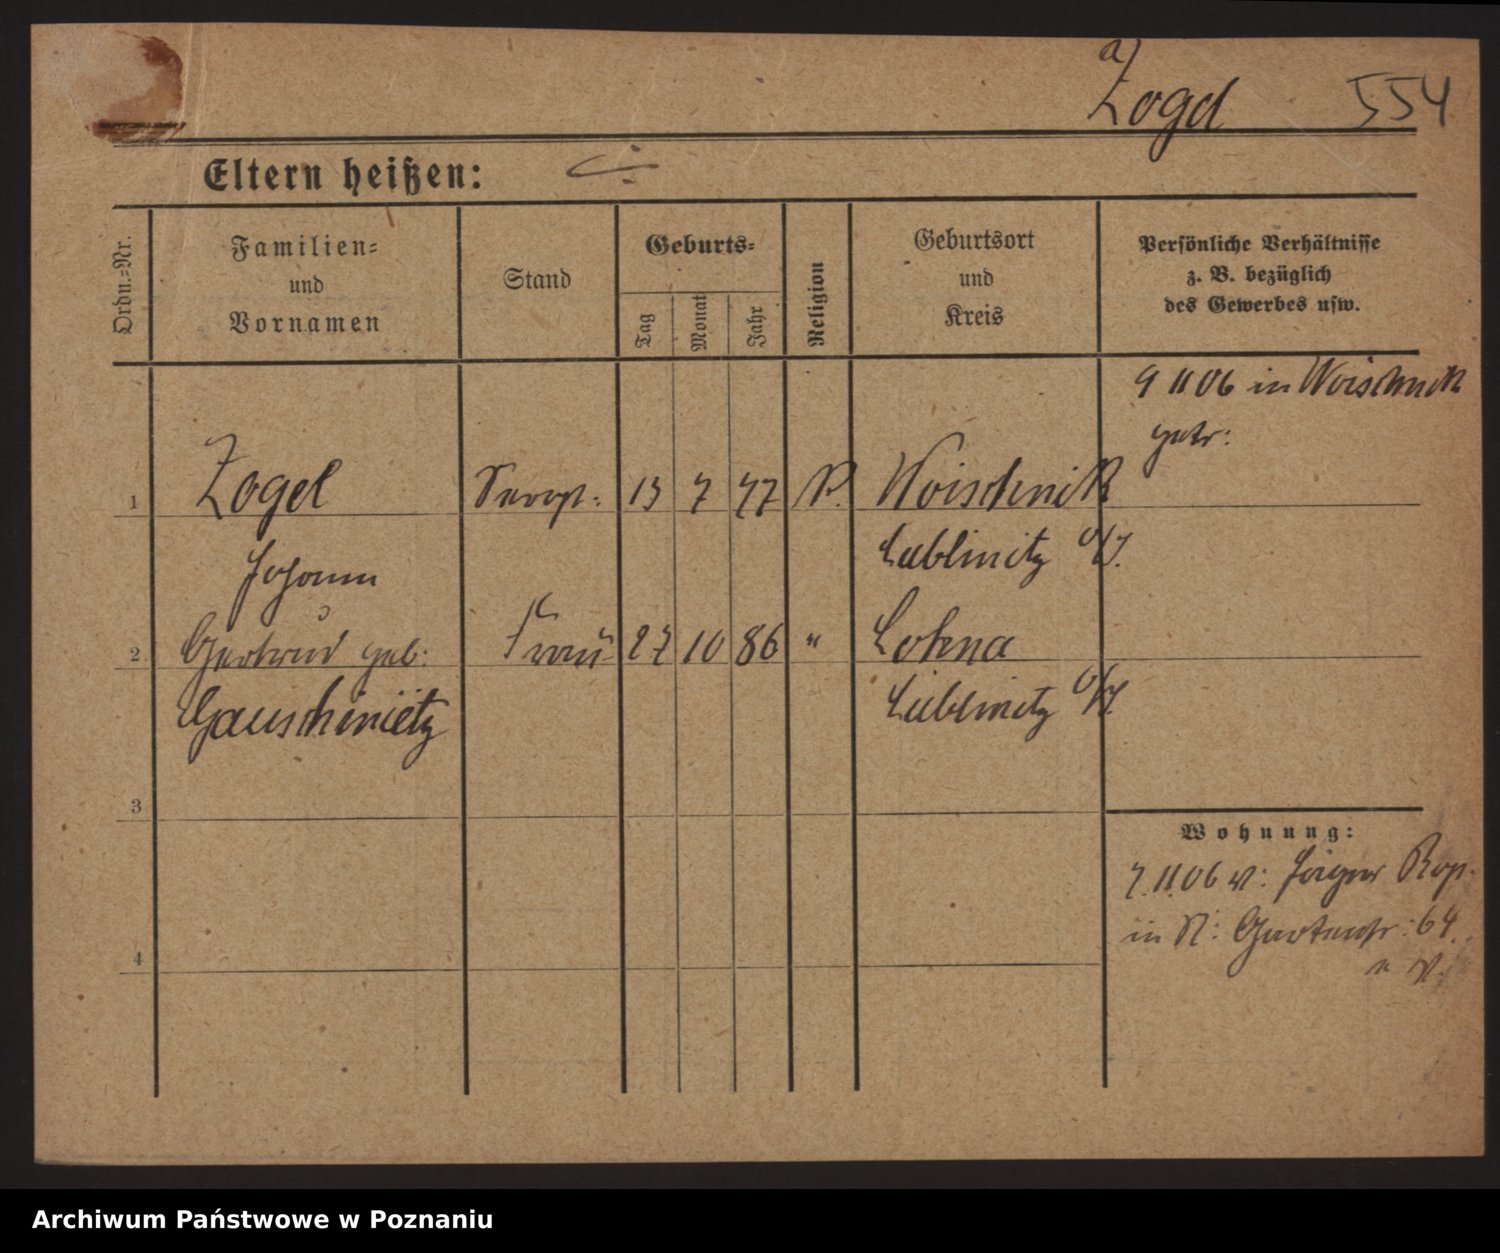 a)
Zogel 554
Eltern heißen:
Ordn.=Nr.
Familien=
und
Vornamen
Stand
Geburts=
Tag
Monat
Jahr
Religion
Geburtsort
und
Kreis
Persönliche Verhältnisse
z. B. bezüglich
des Gewerbes usw.
9 11 06 in Woischnik
getr:
1 Zogel 13 7 77 Woischnik
Johann Lublinitz O/S.
2 Gertrud geb: Frau 27 10 86 " Lohna
Gauschinietz Lublinitz O/S
3
Wohnung:
7.11.06 v:
in Gartenstr: 64
4
Archiwum Państwowe w Poznaniu